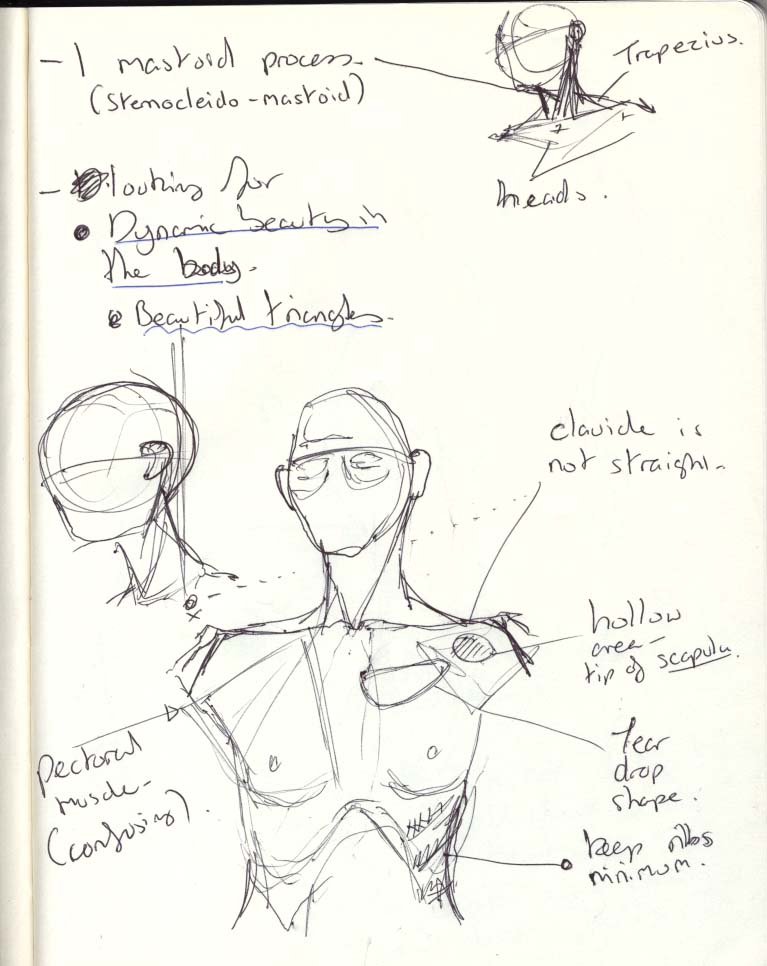 - 1 mastoid process.
(Stenocleido-mastoid)
Trapezius.
heads.
- looking for
Dynamic beauty in
the body.
Beautiful triangles.
clavicle is
not straight.
hollow
area -
tip of scapula.
Pectoral
muscle -
(confusing).
Tear
drop
shape.
keep ribs
minimum.